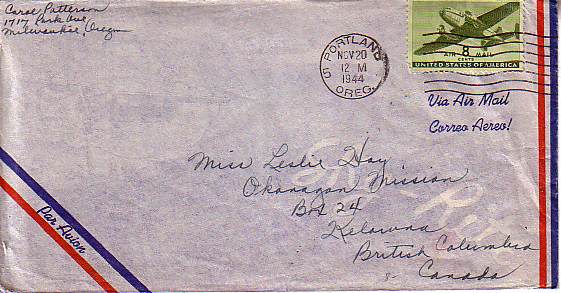 Carol Patterson
1717 Park Ave
Milwaukie, Oregon
5 PORTLAND
NOV 20
12 M
1944
OREG.
AIR 8 MAIL
CENTS
UNITED STATES OF AMERICA
Via Air Mail
Correo Aereo!
Miss Leslie Hay
Okanagan Mission
Box 24
Kelowna
British Columbia
Canada
Par Avion